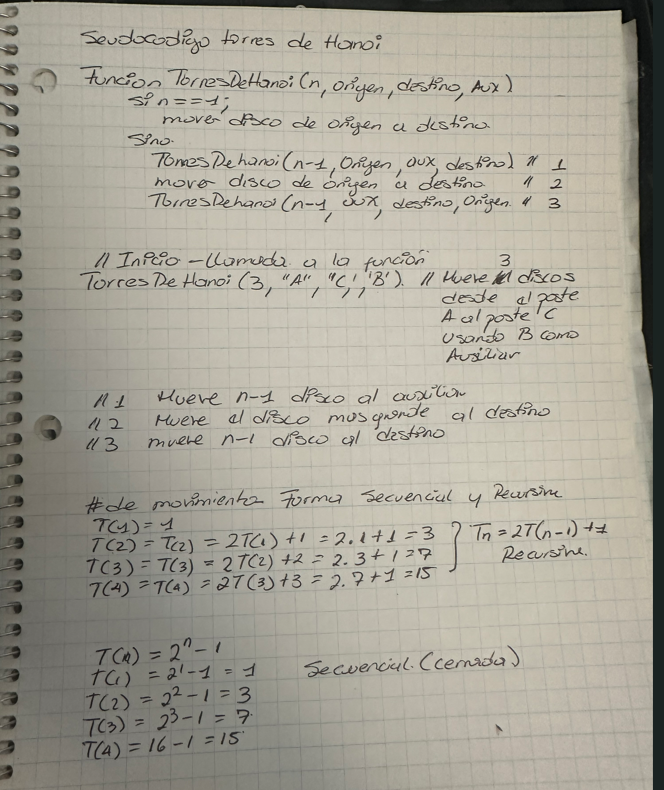 Seudocodigo torres de Hanoi
Funcion TorresDeHanoi (n, origen, destino, Aux)
Si n==1;
mover disco de origen a destino.
Sino.
TorresDehanoi (n-1, Origen, aux, destino) // 1
mover disco de origen a destino // 2
TorresDehanoi (n-1, aux, destino, Origen. // 3
// Inicio - llamada a la función
TorresDeHanoi (3, "A", "C", 'B'). // Mueve 3 discos
desde el poste
A al poste C
Usando B como
Auxiliar
// 1 Mueve n-1 disco al auxiliar
// 2 Mueve el disco mas grande al destino
// 3 mueve n-1 disco al destino
# de movimiento Forma Secuencial y Recursiva
T(1) = 1
T(2) = T(2) = 2T(1) + 1 = 2.1+1 = 3
T(3) = T(3) = 2T(2)+2 = 2.3+1=7
T(4) = T(4) = 2T(3)+3 = 2.7+1=15
Tn = 2T(n-1)+1
Recursiva.
T(n) = 2^n - 1
T(1) = 2^1 - 1 = 1
Secuencial. (cerrada)
T(2) = 2^2 - 1 = 3
T(3) = 2^3 - 1 = 7
T(4) = 16 - 1 = 15